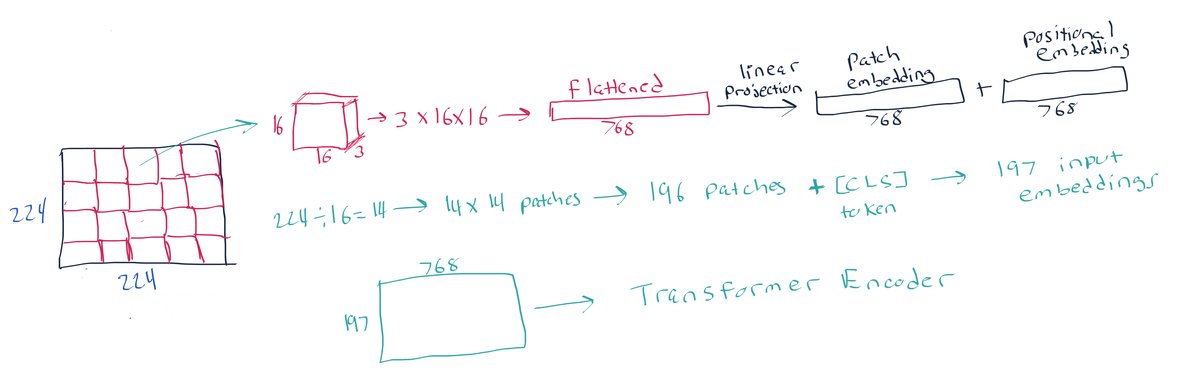 224
224
16
16
3
→ 3 x 16 x 16 →
Flattened
768
linear
projection
Patch
embedding
768
+
Positional
embedding
768
224 ÷ 16 = 14 → 14 x 14 patches → 196 patches + [CLS]
token
→ 197 input
embeddings
768
197
→ Transformer Encoder